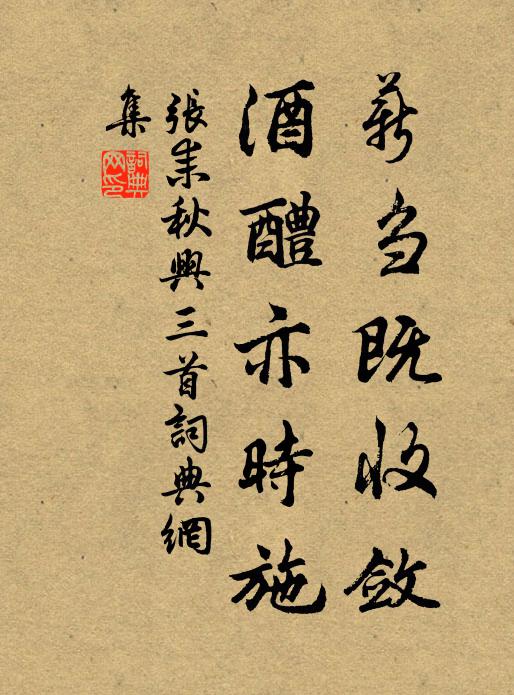 薪刍既收斂
酒醴亦時施
張耒秋興三首詞典網
集
詞典
网印